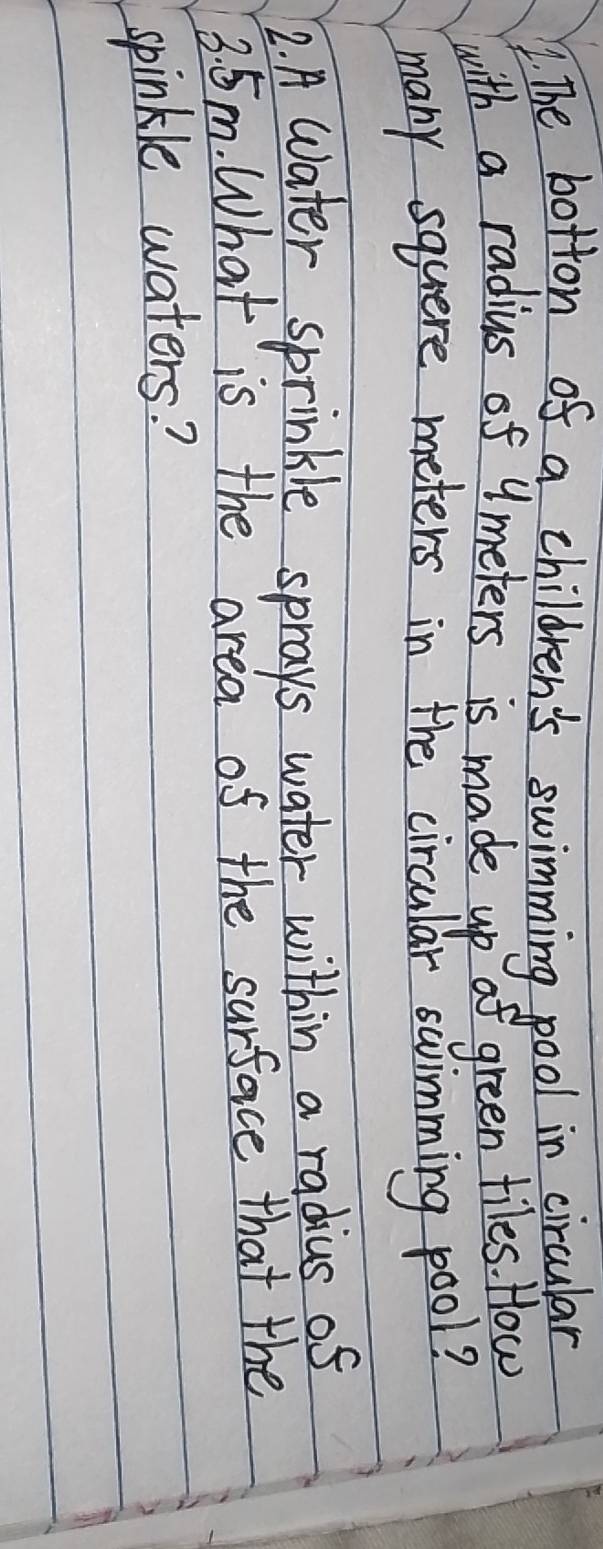 1. The botton of a children's swimming pool in circular
with a radius of 4 meters is made up of green tiles. How
many squere meters in the circular swimming pool?
2. A water sprinkle sprays water within a radius of
3.5 m. What is the area of the surface that the
spinkle waters?